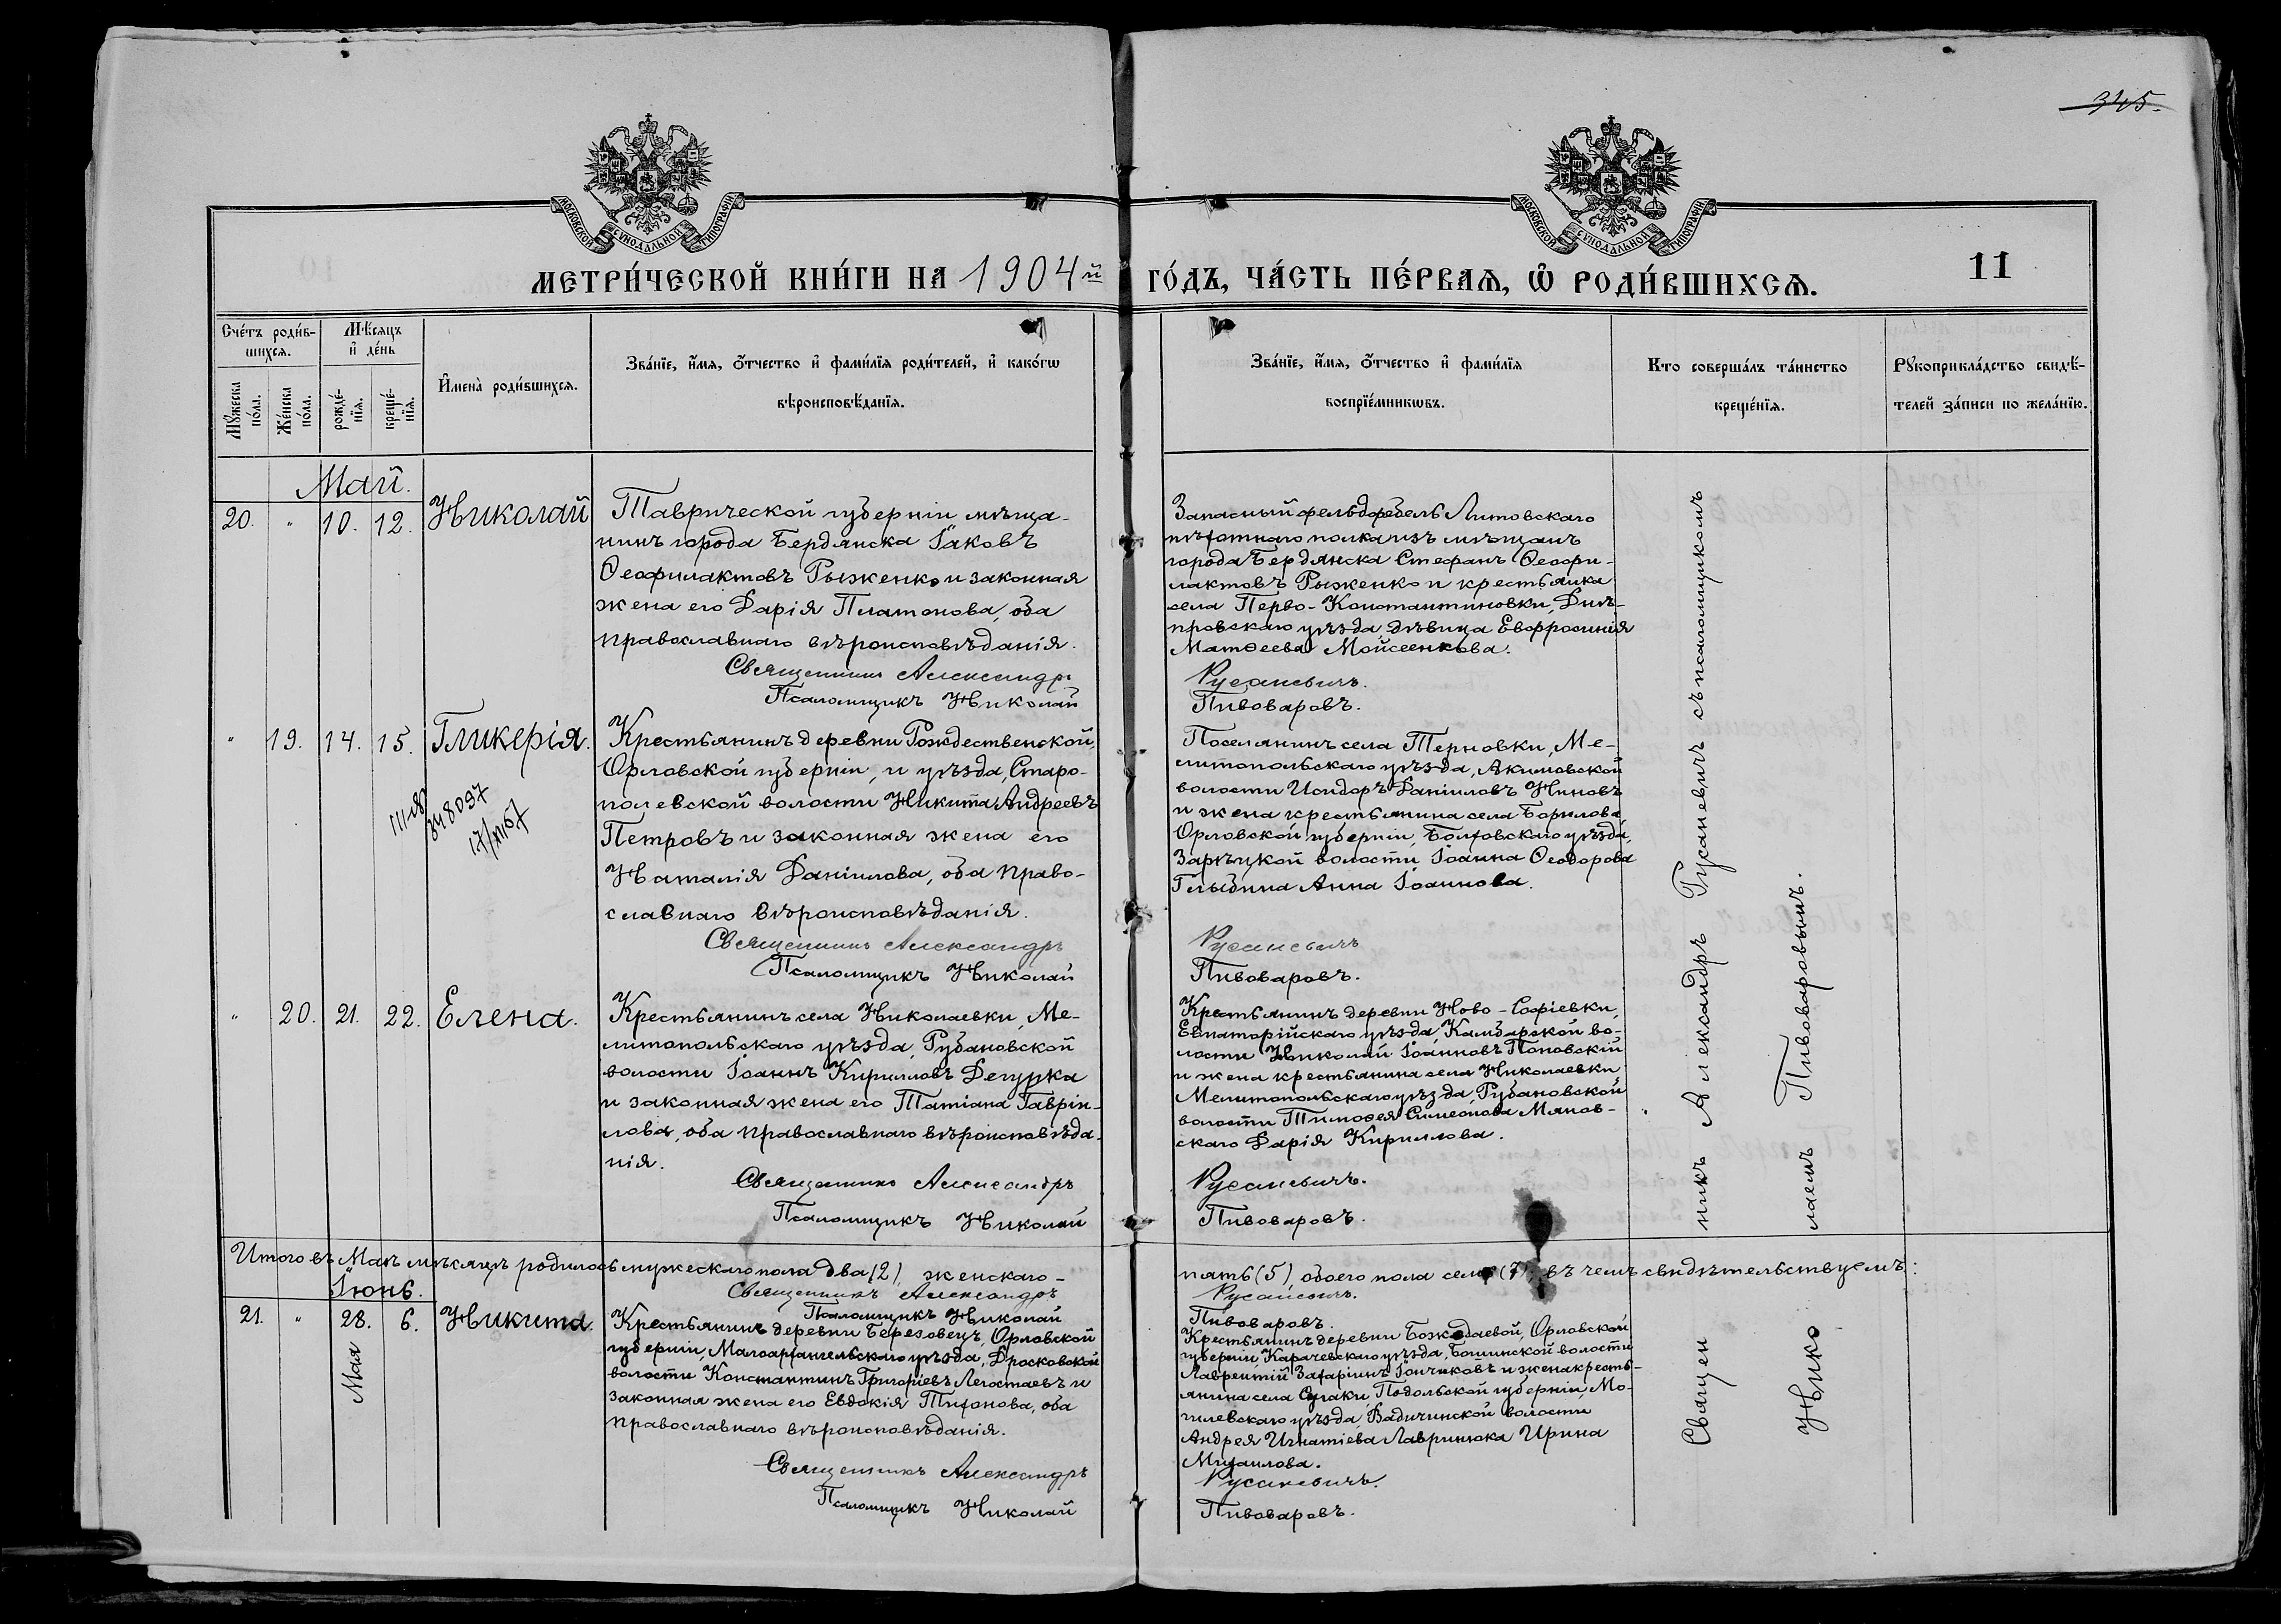 345.
МОСКОВСКОЙ СУНОДАЛЬНОЙ ТИПОГРАФІИ
МОСКОВСКОЙ СУНОДАЛЬНОЙ ТИПОГРАФІИ
МЕТРИ́ЧЕСКОЙ КНИ́ГИ НА 1904й ГО́ДЪ, ЧА́СТЬ ПЕ́РВАѦ, Ѡ҆ РОДИ́ВШИХСѦ.
11
Сче́тъ роди́в-
шихся.
Мѣ́сяцъ
и҆ де́нь
Мꙋ́жеска
по́ла.
Же́нска
по́ла.
рожде́-
нїя.
креще́-
нїя.
И҆мена̀ роди́вшихся.
Зва́нїе, и҆́мя, ѻ҆́тчество и҆ фами́лїя роди́телей, и҆ како́гѡ
вѣроисповѣ́данїя.
Зва́нїе, и҆́мя, ѻ҆́тчество и҆ фами́лїя
воспрїе́мникѡвъ.
Кто соверша́лъ та́инство
креще́нїя.
Рꙋкоприкла́дство свидѣ́-
телей за́писи по жела́нїю.
Май.
20. " 10. 12. Николай
Таврической губерніи мѣща-
нинъ города Бердянска Іаковъ
Ѳеофилактовъ Рыженко и законная
жена его Дарія Платонова, оба
православнаго вѣроисповѣданія.
Священникъ Александръ
Псаломщикъ Николай
Запасный фельдфебель Литовскаго
пѣхотнаго полка изъ мѣщанъ
города Бердянска Стефанъ Ѳеофи-
лактовъ Рыженко и крестьянка
села Перво-Константиновки, Днѣ-
провскаго уѣзда, дѣвица Евфросинія
Матѳеева Мойсеенкова.
Русаневичъ.
Пивоваровъ.
" 19. 14. 15. Гликерія.
348097
Крестьянинъ деревни Рождественской,
Орловской губерніи, и уѣзда, Старо-
полевской волости Никита Андреевъ
Петровъ и законная жена его
Наталія Даніилова, оба право-
славнаго вѣроисповѣданія.
Священникъ Александръ
Псаломщикъ Николай
Поселянинъ села Терновки, Ме-
литопольскаго уѣзда, Акимовской
волости Исидоръ Даніиловъ Ниновъ
и жена крестьянина села Борилова,
Орловской губерніи, Болховскаго уѣзда,
Зарѣцкой волости Іоанна Ѳеодорова
Голыбина Анна Іоаннова.
Русаневичъ
Пивоваровъ.
" 20. 21. 22. Елена.
Крестьянинъ села Николаевки, Ме-
литопольскаго уѣзда, Рубановской
волости Іоаннъ Кирилловъ Дегурка
и законная жена его Татіана Гавріи-
лова, оба православнаго вѣроисповѣда-
нія.
Священникъ Александръ
Псаломщикъ Николай
Крестьянинъ деревни Ново-Софіевки,
Евпаторійскаго уѣзда, Камбарской во-
лости Николай Іоанновъ Поповскій
и жена крестьянина села Николаевки
Мелитопольскаго уѣзда, Рубановской
волости Тимоѳея Симеонова Манов-
скаго Дарія Кириллова.
Русаневичъ.
Пивоваровъ.
Итого въ Маѣ мѣсяцѣ родилось мужескаго пола два (2), женскаго-
пять (5), обоего пола семь (7), въ чемъ свидѣтельствуемъ:
Священникъ Александръ
Русаневичъ.
Псаломщикъ Николай
Пивоваровъ.
Іюнь.
21. " 28. 6. Никита.
Мая
Крестьянинъ деревни Березовецъ, Орловской
губерніи, Малоархангельскаго уѣзда, Дросковской
волости Константинъ Григоріевъ Легостаевъ и
законная жена его Евдокія Тихонова, оба
православнаго вѣроисповѣданія.
Священникъ Александръ
Псаломщикъ Николай
Крестьянинъ деревни Бождаевой, Орловской
губерніи, Карачевскаго уѣзда, Бошинской волости
Лаврентій Захаріинъ Гончиковъ и жена кресть-
янина села Сугаки, Подольской губерніи Мо-
гилевскаго уѣзда, Вадичинской волости
Андрея Игнатіева Лавринюка Ирина
Михаилова.
Русаневичъ.
Пивоваровъ.
Священникъ Александръ Русаневичъ съ псаломщикомъ
Николаемъ Пивоваровымъ.